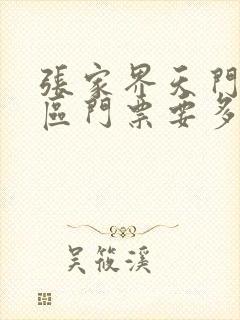 張家界天門
區門票要多
吳筱溪